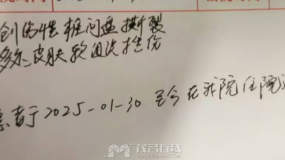 创伤性椎间盘撕裂
多处皮肤软组织挫伤
患者于2025-01-30至今在我院住院